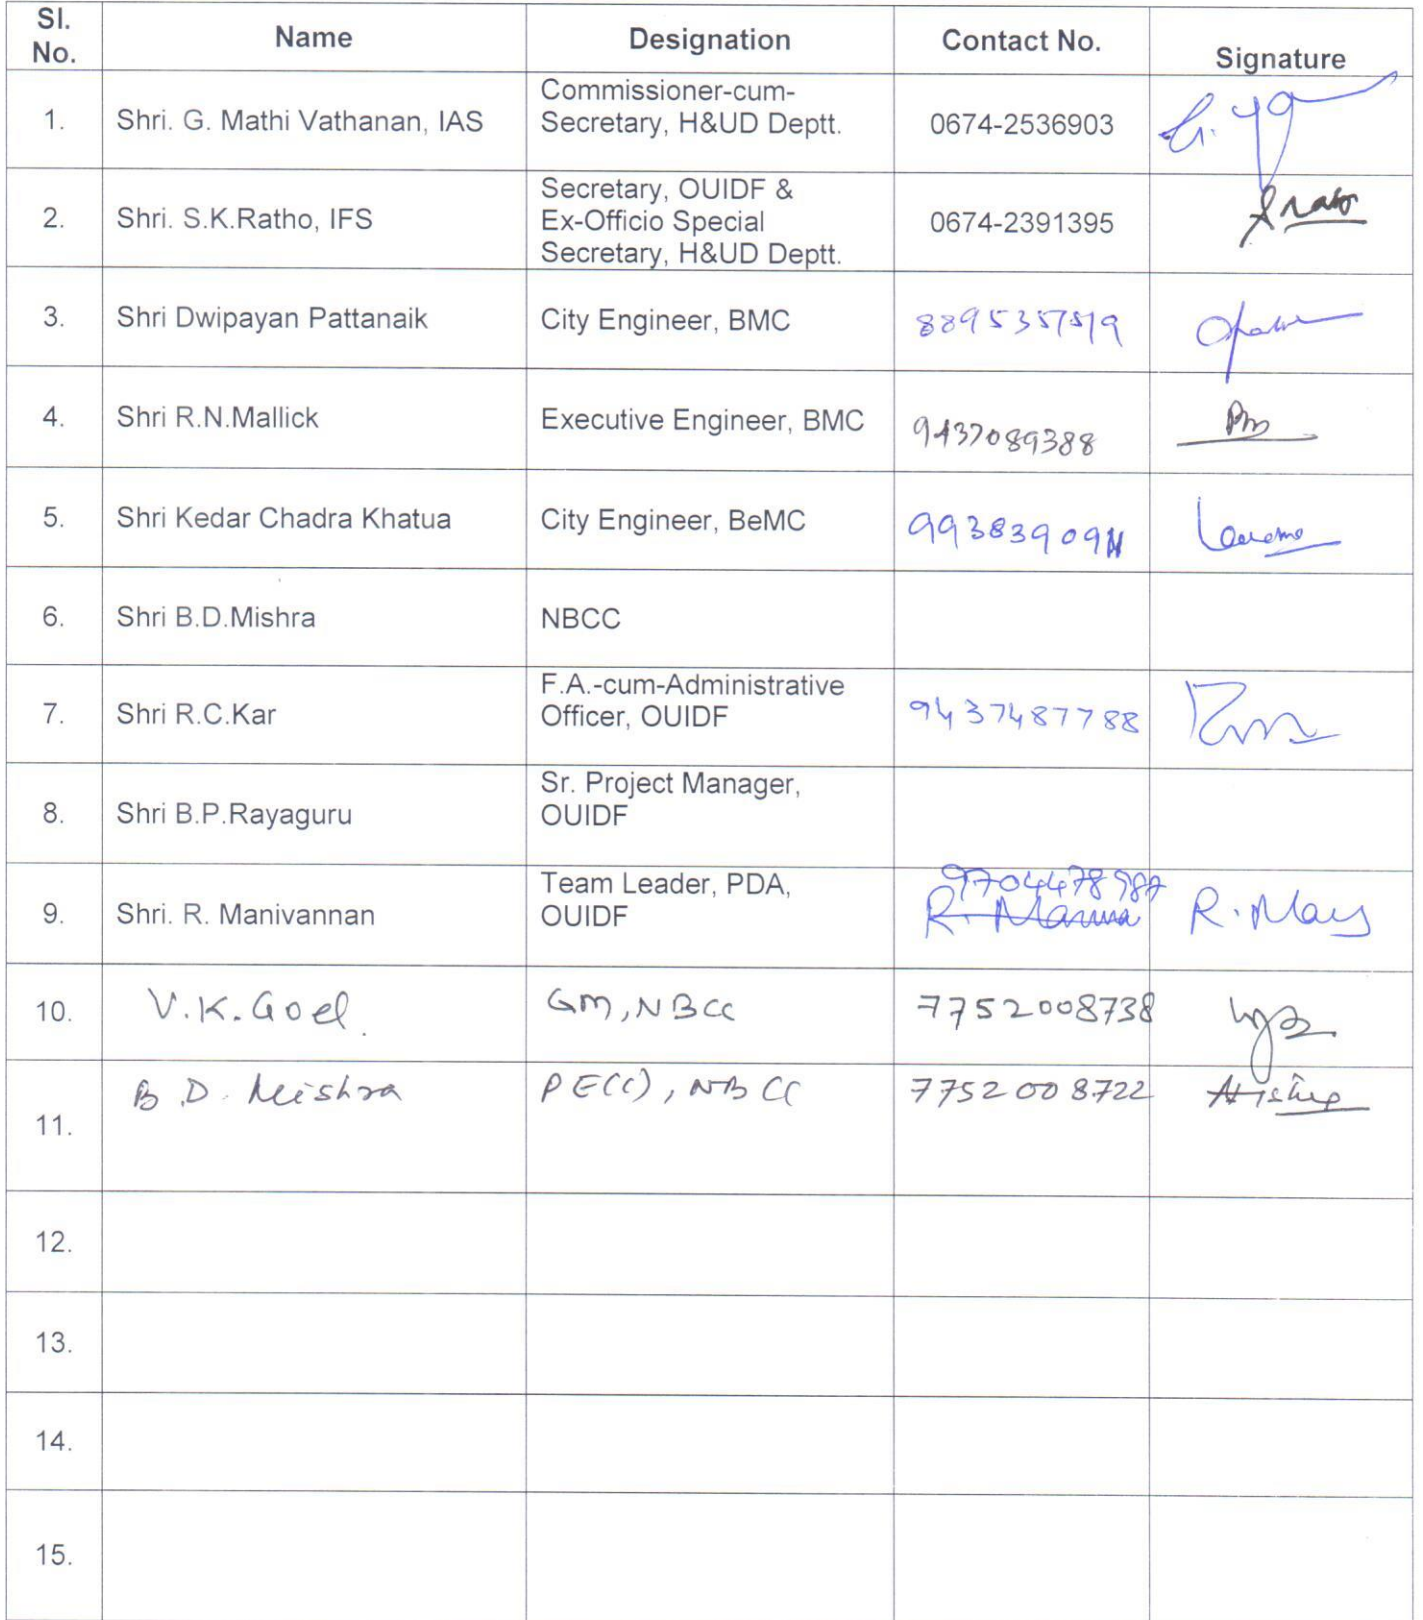 Sl. No. Name Designation Contact No. Signature
1. Shri. G. Mathi Vathanan, IAS Commissioner-cum-
Secretary, H&UD Deptt. 0674-2536903
2. Shri. S.K.Ratho, IFS Secretary, OUIDF &
Ex-Officio Special
Secretary, H&UD Deptt. 0674-2391395
3. Shri Dwipayan Pattanaik City Engineer, BMC
4. Shri R.N.Mallick Executive Engineer, BMC 9437089388
5. Shri Kedar Chadra Khatua City Engineer, BeMC
6. Shri B.D.Mishra NBCC
7. Shri R.C.Kar F.A.-cum-Administrative
Officer, OUIDF 9437487788
8. Shri B.P.Rayaguru Sr. Project Manager,
OUIDF
9. Shri. R. Manivannan Team Leader, PDA,
OUIDF 9704478987
10. V.K.Goel. GM, NBCC 7752008738
11. B.D. Mishra PE(C), NBCC 7752008722
12.
13.
14.
15.